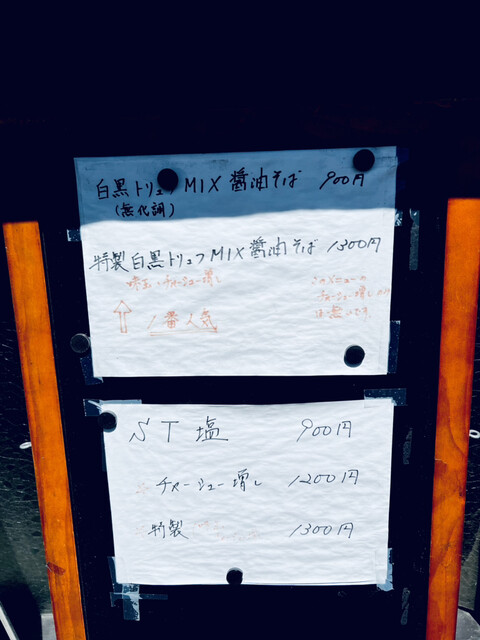 白黒トリュフMIX醤油そば 900円
(無化調)
特製白黒トリュフMIX醤油そば 1300円
味玉・チャーシュー増し
1番人気
このメニューの
チャーシュー増し
ST塩 900円
チャーシュー増し 1200円
特製 1300円